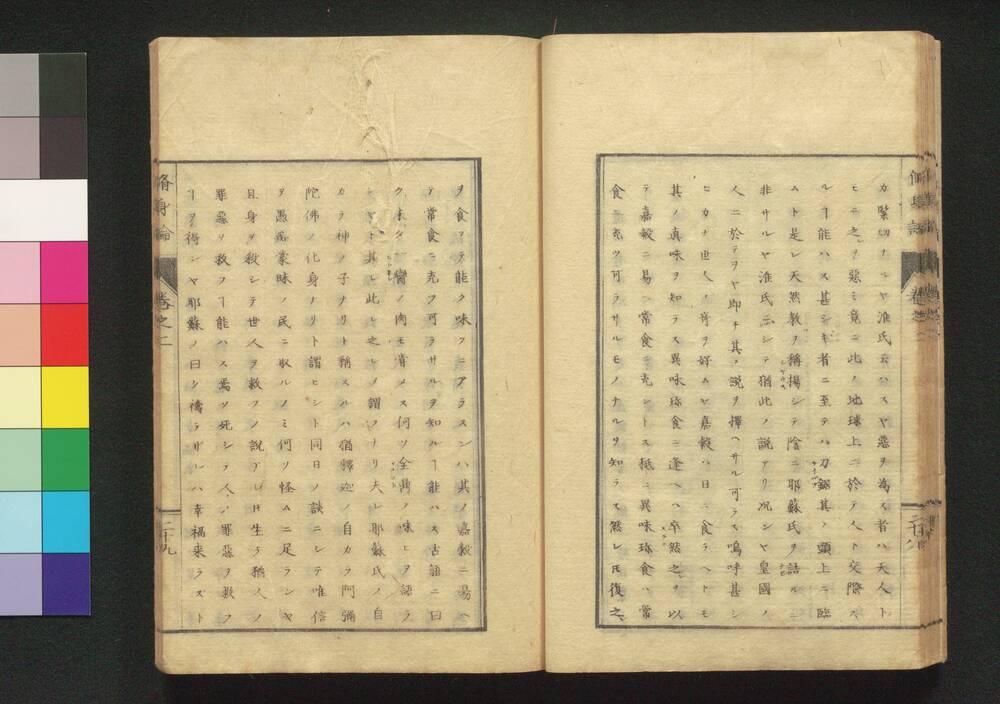 カ緊切ナルヤ淮氏云ハスヤ惡ヲ為ス者ハ天人ト
モニ之ヲ惡ミ竟ニ此ノ地球上ニ於テ人ト交際ス
ルヿ能ハス甚シキ者ニ至テハ刀鋸其ノ頭上ニ臨
ムト是レ天然教ヲ稱揚シテ陰ニ耶蘇氏ヲ詰ルニ
非サルヤ淮氏ニシテ猶此ノ說アリ况シヤ皇國ノ
人ニ於テヲヤ即チ其ノ說ヲ擇ヘサル可ラス嗚呼甚シ
ヒカナ世人ノ奇ヲ好ムヤ嘉穀ハ日ニ食ラヘトモ
其ノ真味ヲ知ラス異味珍食ニ逢ヘハ卒然之ヲ以
テ嘉穀ニ易ヘ常食ニ充シトス抵ニ異味珍食ハ常
食ニ充ツ可ラサルモノナルヲ知ラス然レ𪜈復之
卷之二
二十八
ヲ食ヲテ能ク味フニアラスンハ其ノ嘉穀ニ易ヘ
テ常食ニ充フ可ラサルヲ知ルヿ能ハス古語ニ曰
ク未タ一臠ノ肉モ嘗メス何ソ全鼎ノ味ヒヲ語ラ
ンヤト其レ此レ之レノ謂ヒナリ夫レ耶蘇氏ノ自
カラ神ノ子ナリト稱スルハ猶釋迦ノ自カラ阿彌
陀佛ノ化身ナリト謂ヒシト同日ノ談ニシテ唯信
ヲ愚蒙昧ノ民ニ取ルノミ何ソ怪ムニ足ランヤ
且身ヲ殺シテ世人ヲ救フノ說アレ𪜈生テ猶人ノ
罪惡ヲ救フヿ能ハス焉ソ死シテ人ノ罪惡ヲ救フ
ヿヲ得ンヤ耶蘇ノ曰シ禱ラザレハ幸福来ラスト
脩身論
卷之二
二十九